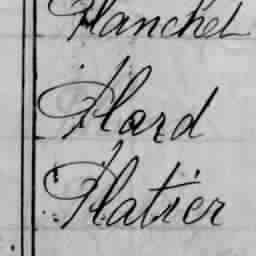 Planchet
Plard
Platier